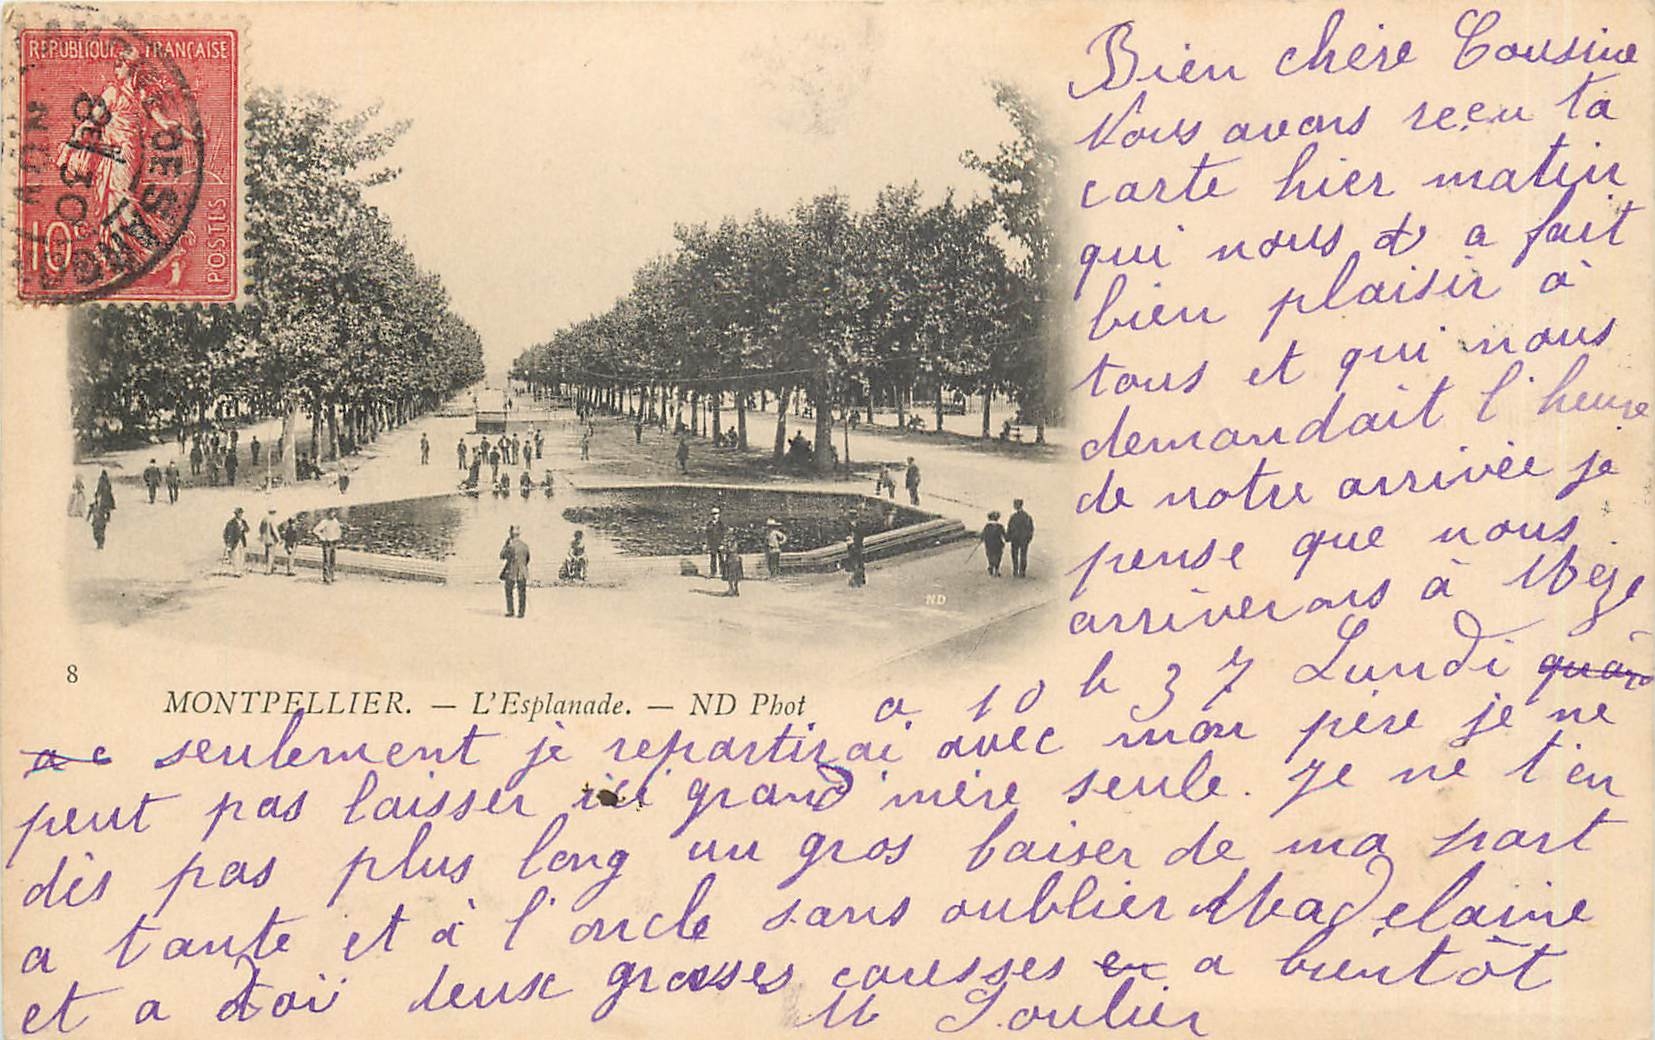 REPUBLIQUE FRANCAISE
10c
POSTES
DE SAL
8E
30
Bien chère Cousine
Nous avons reçu ta
carte hier matin
qui nous a fait
bien plaisir à
tous et qui nous
demandait l'heure
de notre arrivée je
pense que nous
arriverons à Mèze
a 10 h 37 Lundi
seulement je repartirai avec mon père je ne
peut pas laisser ici grand mère seule. Je ne t'en
dis pas plus long un gros baiser de ma part
a tante et à l'oncle sans oublier Madelaine
et a toi deux grosses caresses a bientôt
M Soulier
ND
8
MONTPELLIER. — L'Esplanade. — ND Phot